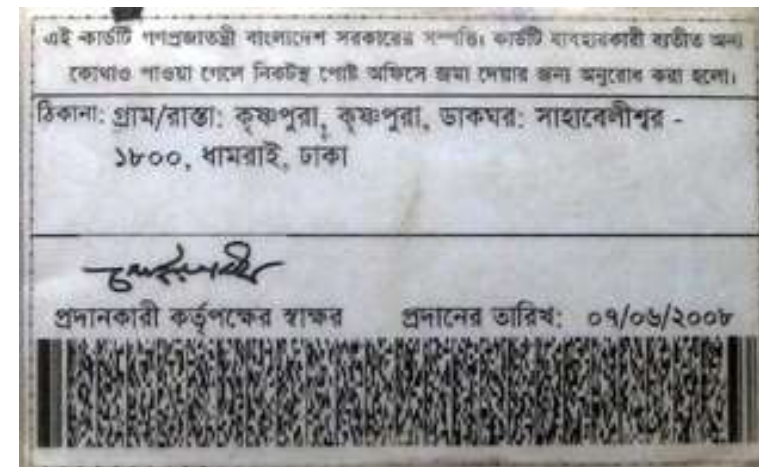 এই কার্ডটি গণপ্রজাতন্ত্রী বাংলাদেশ সরকারের সম্পত্তি। কার্ডটি ব্যবহারকারী ব্যতীত অন্য
কোথাও পাওয়া গেলে নিকটস্থ পোষ্ট অফিসে জমা দেয়ার জন্য অনুরোধ করা হলো।
ঠিকানা: গ্রাম/রাস্তা: কৃষ্ণপুরা, কৃষ্ণপুরা, ডাকঘর: সাহাবেলীশ্বর -
১৮০০, ধামরাই, ঢাকা
প্রদানকারী কর্তৃপক্ষের স্বাক্ষর প্রদানের তারিখ: ০৭/০৬/২০০৮